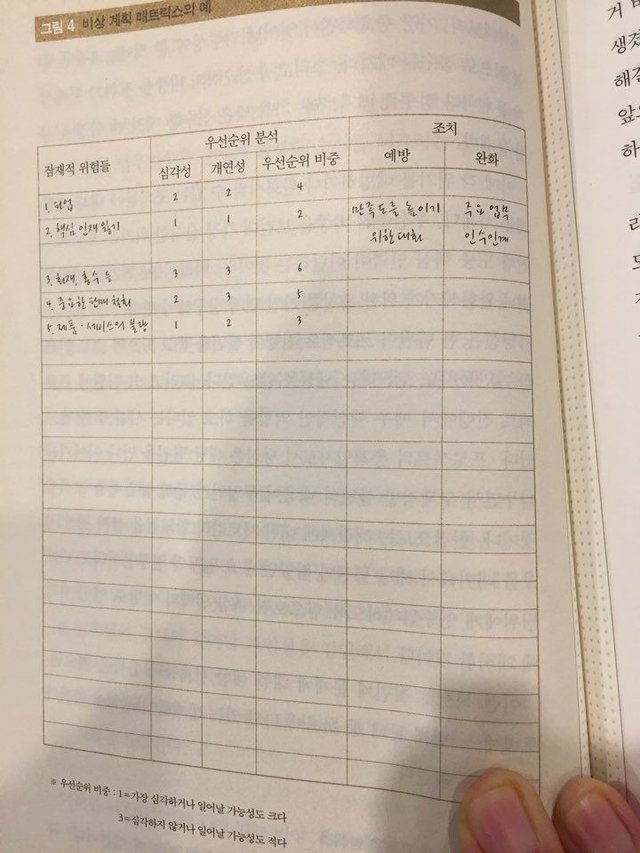 그림 4 비상 계획 매트릭스의 예
우선순위 분석 조치
잠재적 위험들 심각성 개연성 우선순위 비중 예방 완화
1. 파업 2 2 4
2. 핵심 인재 잃기 1 1 2 만족도를 높이기 주요 업무
위한 대화 인수인계
3. 화재, 홍수 등 3 3 6
4. 중요한 판매 철회 2 3 5
5. 제품·서비스의 불량 1 2 3
※ 우선순위 비중 : 1=가장 심각하거나 일어날 가능성도 크다
3=심각하지 않거나 일어날 가능성도 적다
거
생겼
해결
앞
하